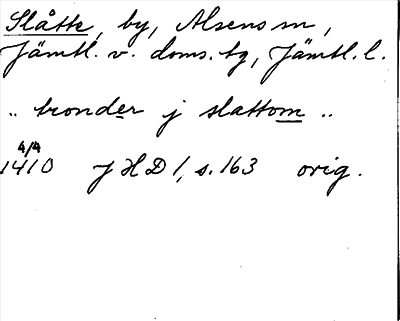 Slåtte, by, Alsens sn,
Jämtl. v. doms. tg, Jämtl. l.
.. bonder j slattom ..
4/4
1410 JHD 1, s. 163 orig.